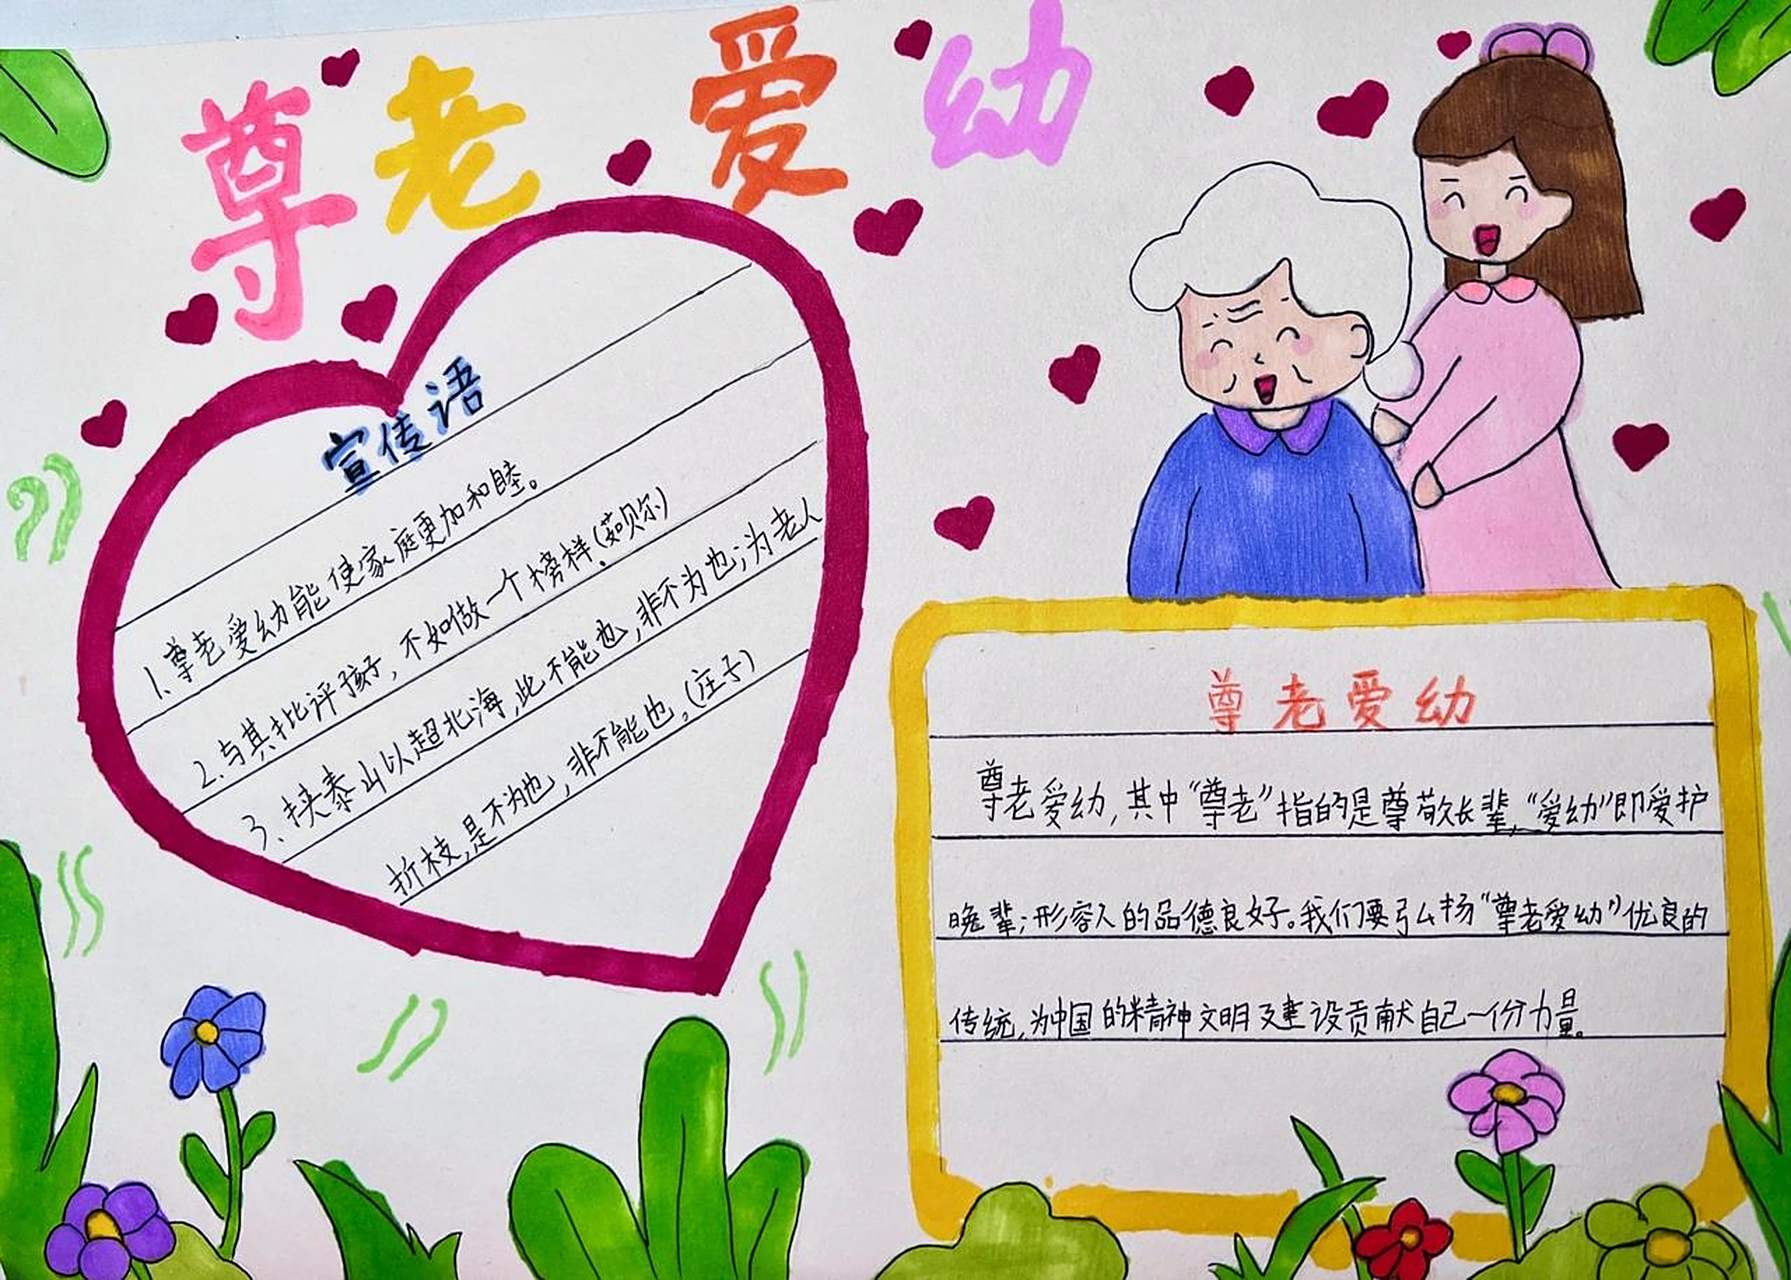 尊老爱幼
宣传语
1、尊老爱幼能使家庭更加和睦。
2.与其批评孩子，不如做一个榜样(茹贝尔)
3、挟泰山以超北海,此不能也,非不为也;为老人
折枝,是不为也，非不能也。(庄子)
尊老爱幼
尊老爱幼,其中“尊老”指的是尊敬长辈,“爱幼”即爱护
晚辈;形容人的品德良好。我们要弘扬“尊老爱幼”优良的
传统,为中国的精神文明建设贡献自己一份力量。